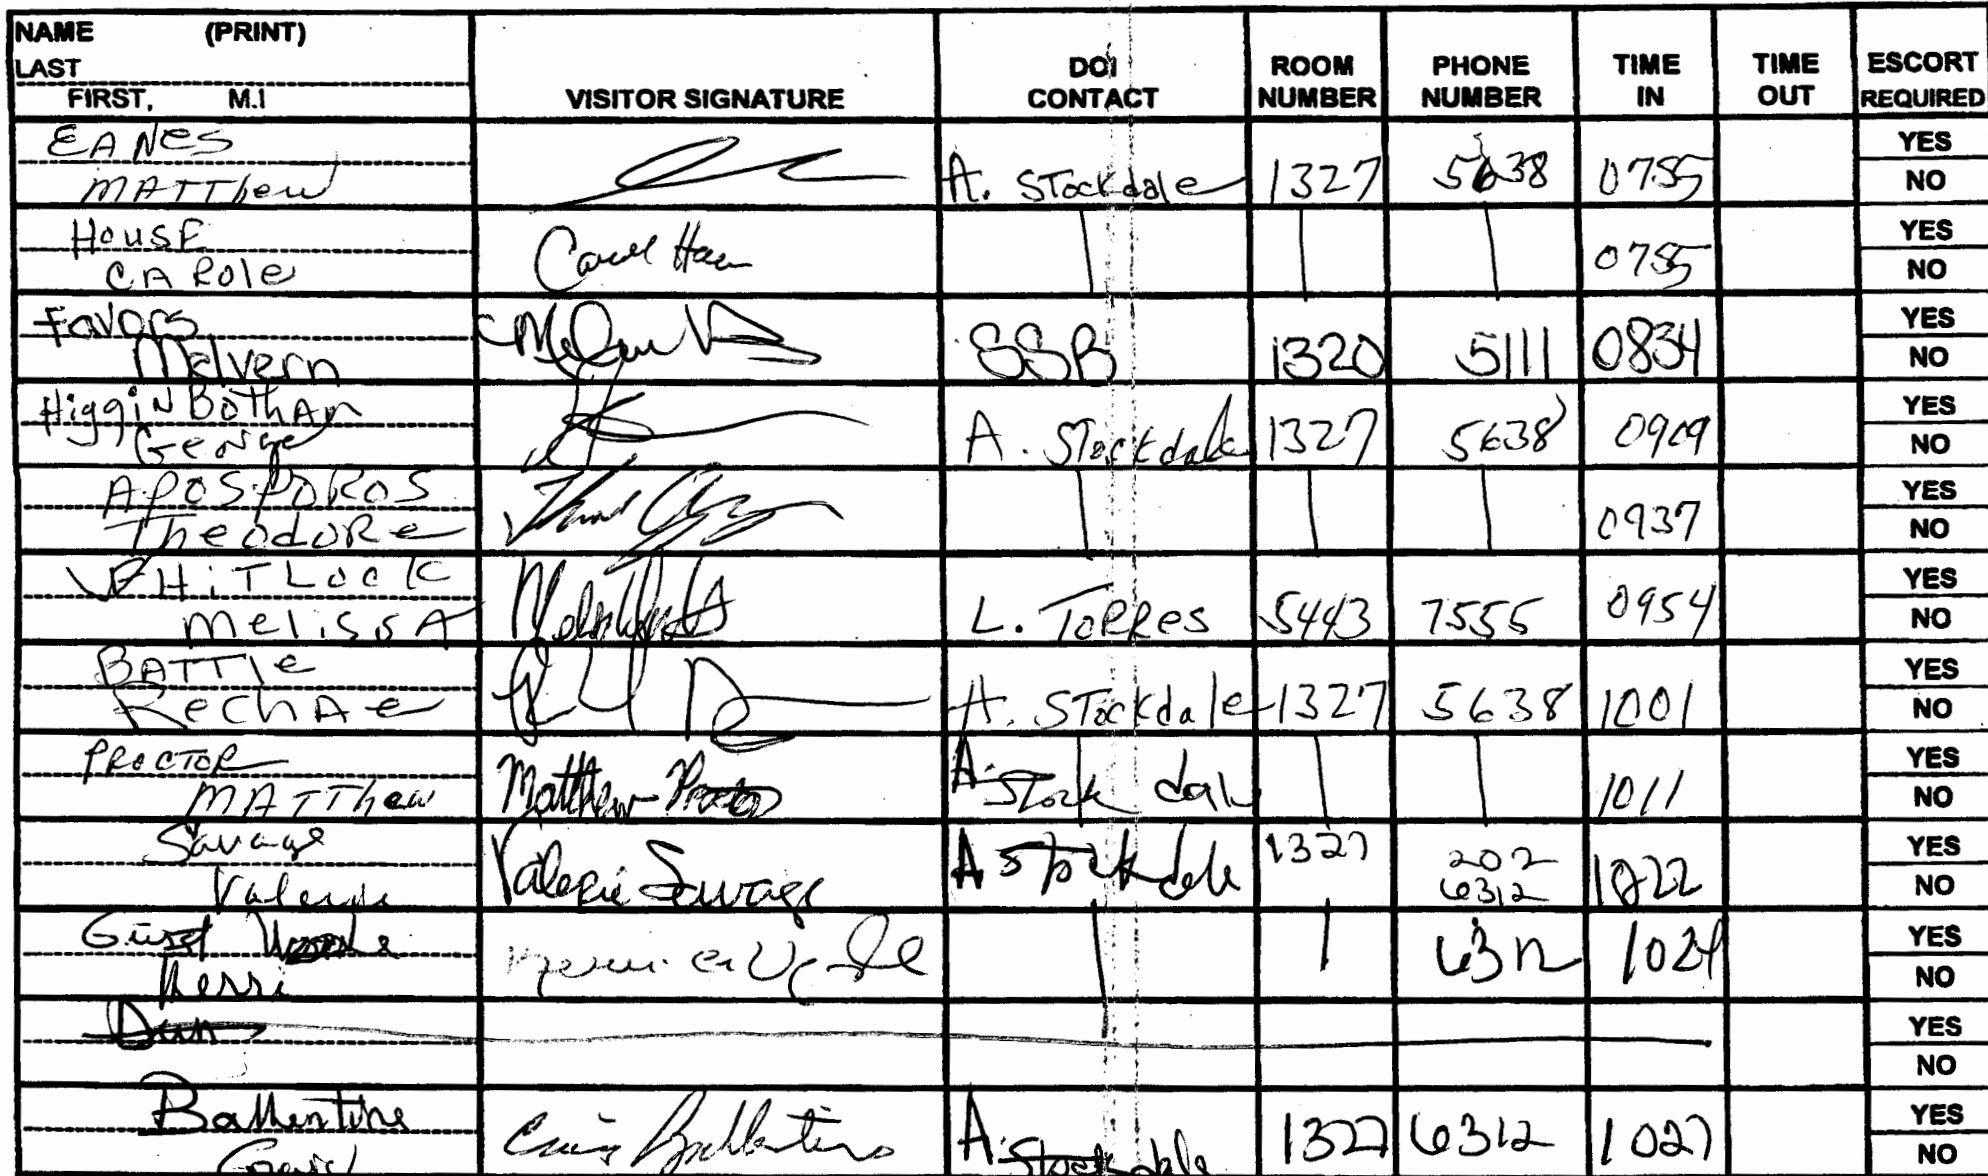 NAME (PRINT)
LAST
FIRST, M.I
VISITOR SIGNATURE
DOI CONTACT
ROOM NUMBER
PHONE NUMBER
TIME IN
TIME OUT
ESCORT REQUIRED
EANES
MATThew
A. Stockdale 1327 5638 0755
YES
NO
HOUSE
CARole
0755
YES
NO
Favors
Malvern
SSB 1320 5111 0834
YES
NO
HigginBotham
George
A. Stockdale 1327 5638 0909
YES
NO
APOSPOROS
TheodoRe
0937
YES
NO
WHiTLock
MelissA
L. ToRRes 5443 7555 0954
YES
NO
BATTle
RechAe
A. STockdale 1327 5638 1001
YES
NO
PROCTOR
MATThew
Matthew Proctor
A. Stockdale
1011
YES
NO
Savage
Valerie
Valerie Savage
A Stockdale 1327 202 6312 1022
YES
NO
Kerri
6312 1024
YES
NO
YES
NO
Ballentine
Craig Ballentine
A. Stockdale 1327 6312 1027
YES
NO